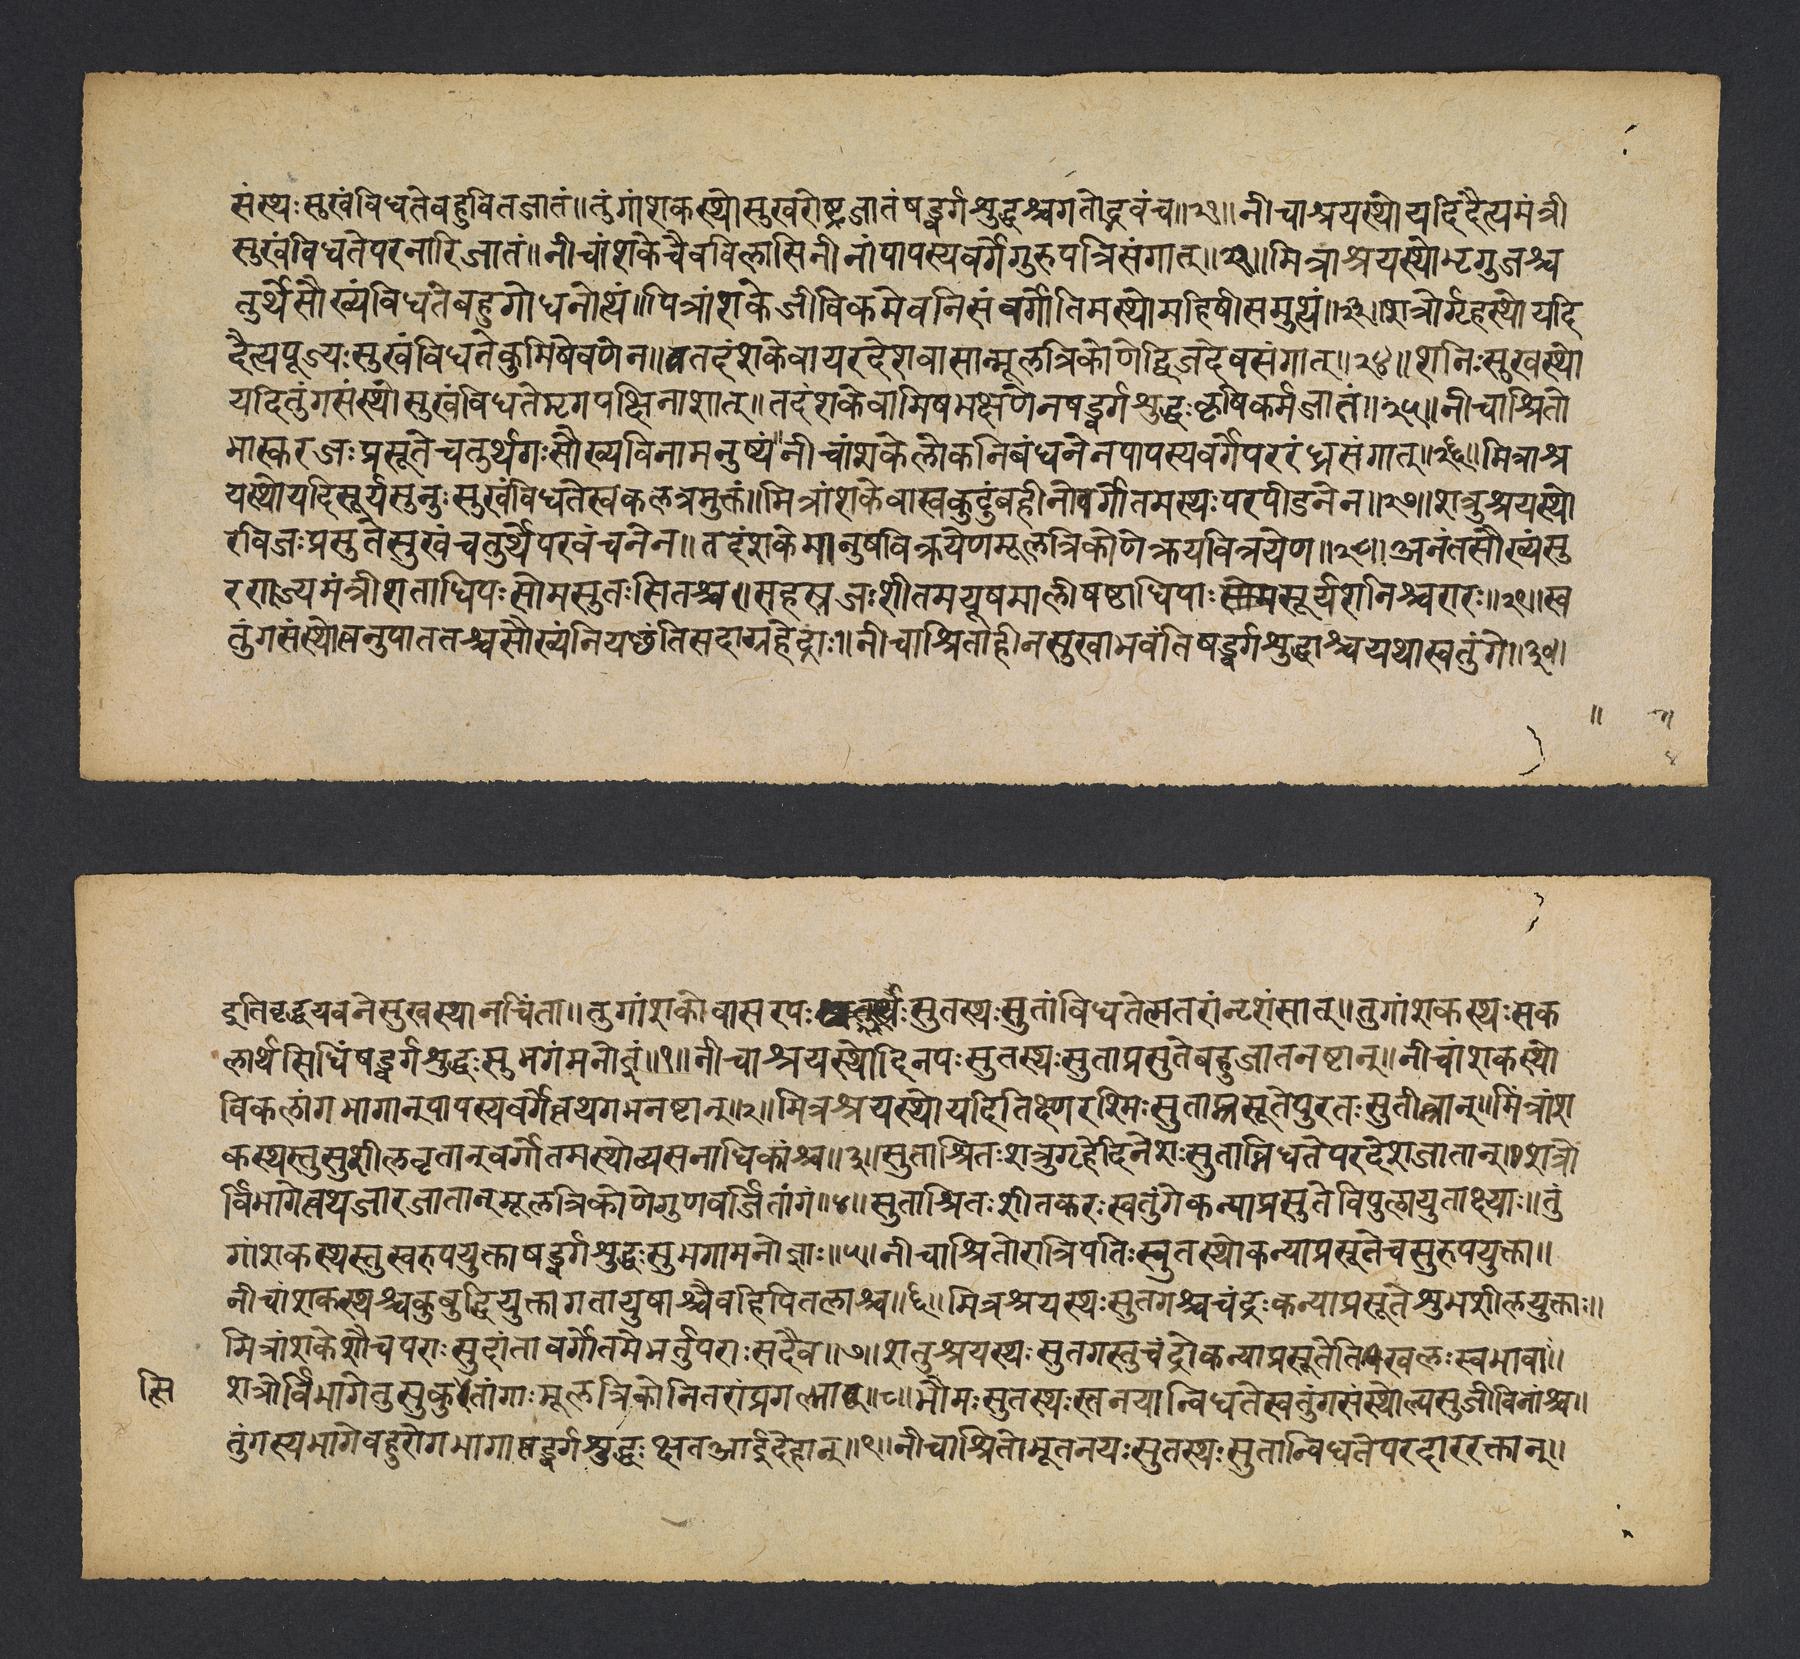 संस्थः सुखं विधत्तेबहुवित्तजातं॥ तुंगांशकस्थो सुखरोष्ट्रजातं षड्वर्गशुद्धश्च गतोद्भवं च॥२१॥ नीचाश्रयस्थो यदि दैत्यमंत्री
सुखं विधत्ते परनारिजातं॥ नीचांशके चैव विलासिनीनां पापस्य वर्गे गुरुपत्निसंगात्॥२२॥ मित्राश्रयस्थो भृगुजश्च
तुर्थे सौख्यं विधत्ते बहुगोधनोत्थं॥ पित्रांशके जीविकमेव निसं वर्गोतिमस्थो महिषीसमुत्थं॥२३॥ शत्रोर्गृहस्थो यदि
दैत्यपूज्यः सुखं विधत्ते कुमिषेवणेन॥ तदंशके वा यरदेशवासान्मूलत्रिकोणे द्विजदेवसंगात्॥२४॥ शनिः सुखस्थो
यदि तुंगसंस्थो सुखं विधत्ते मृगपक्षिनाशात्॥ तदंशके वामिषभक्षणेन षड्वर्गशुद्धः कृषिकर्मजातं॥२५॥ नीचाश्रितो
भास्करजः प्रसूते चतुर्थगः सौख्यविनामनुष्यं॥ नीचांशके लोकनिबंधनेन पापस्य वर्गे पररंध्रसंगात्॥२६॥ मित्राश्र
यस्थो यदि सूर्यसुनुः सुखं विधत्ते स्वकलत्रमुक्तं॥ मित्रांशके वा स्वकुटुंबहीनो वर्गोतमस्थः परपीडनेन॥२७॥ शत्रुश्रयस्थो
रविजः प्रसुते सुखं चतुर्थे परवंचनेन॥ तदंशके मानुषविक्रयेण मूलत्रिकोणे क्रयविक्रयेण॥२८॥ अनंतसौख्यं सु
रराज्यमंत्री शताधिपः सोमसुतः सितश्च॥ सहस्रजः शीतमयूषमाली षष्ठाधिपाः सूर्यशनिश्चरारः॥२९॥ स्व
तुंगसंस्थो त्वनुपाततश्च सौख्यं नियछंति सदा ग्रहेंद्राः॥ नीचाश्रिता हीनसुखा भवंति षड्वर्गशुद्धाश्च यथा स्वतुंगे॥३०॥
इति वृद्धयवने सुखस्थानचिंता॥ तुगांशको वासरपः सुतस्थः सुतां विधत्ते त्मतरां नृशंसान्॥ तुगांशकस्थः सक
लार्थसिधिं षड्वर्गशुद्धः सुभगं मनोज्ञं॥१॥ नीचाश्रयस्थो दिनपः सुतस्थः सुता प्रसुते बहुजातनष्टान्॥ नीचांशकस्थो
विकलांगभागान् पापस्य वर्गे त्वथ गमनष्टान्॥२॥ मित्रश्रयस्थो यदि तिक्ष्णरश्मिः सुताम्प्रसूते पुरतः सुतीव्रान्॥ मित्रांश
कस्थस्तु सुशीलवृतान् वर्गोतमस्थो व्यसनाधिकांश्च॥३॥ सुताश्रितः शत्रुगृहे दिनेशः सुतान्विधत्ते परदेशजातान्॥ शत्रो
र्विभागे त्वथ जारजातान् मूलत्रिकोणे गुणवर्जितांगं॥४॥ सुताश्रितः शीतकरः स्वतुंगे कन्या प्रसुते विपुलायुताक्ष्याः॥ तुं
गांशकस्थस्तु स्वरुपयुक्ता षड्वर्गशुद्धः सुभगा मनोज्ञाः॥५॥ नीचाश्रितो रात्रिपतिः स्सुतस्थो कन्या प्रसूते च सुरुपयुक्ता॥
नीचांशकस्थश्च कुबुद्धियुक्ता गतायुषाश्चैव हि पितलाश्च॥६॥ मित्रश्रयस्थः सुतगश्च चंद्रः कन्या प्रसूते शुभशीलयुक्ताः॥
मित्रांशके शौचपराः सुदांता वर्गोतमे भर्तुपराः सदैव॥७॥ शतुश्रयस्थः सुतगस्तु चंद्रो कन्या प्रसूतेति खलः स्वभावा॥
सि शत्रोर्विभागे तु सुकुतांगाः मूलत्रिकोनितरां प्रगल्भा॥८॥ भौमः सुतस्थः स्तनयान्विधत्ते स्वतुंगसंस्थो ल्पसुजीविनाश्च॥
तुंगस्य भागे बहुरोगभागा षड्वर्गशुद्धः क्षतआर्द्रदेहान्॥९॥ नीचाश्रितो भूतनयः सुतस्थः सुतान्विधत्ते परदाररक्तान्॥